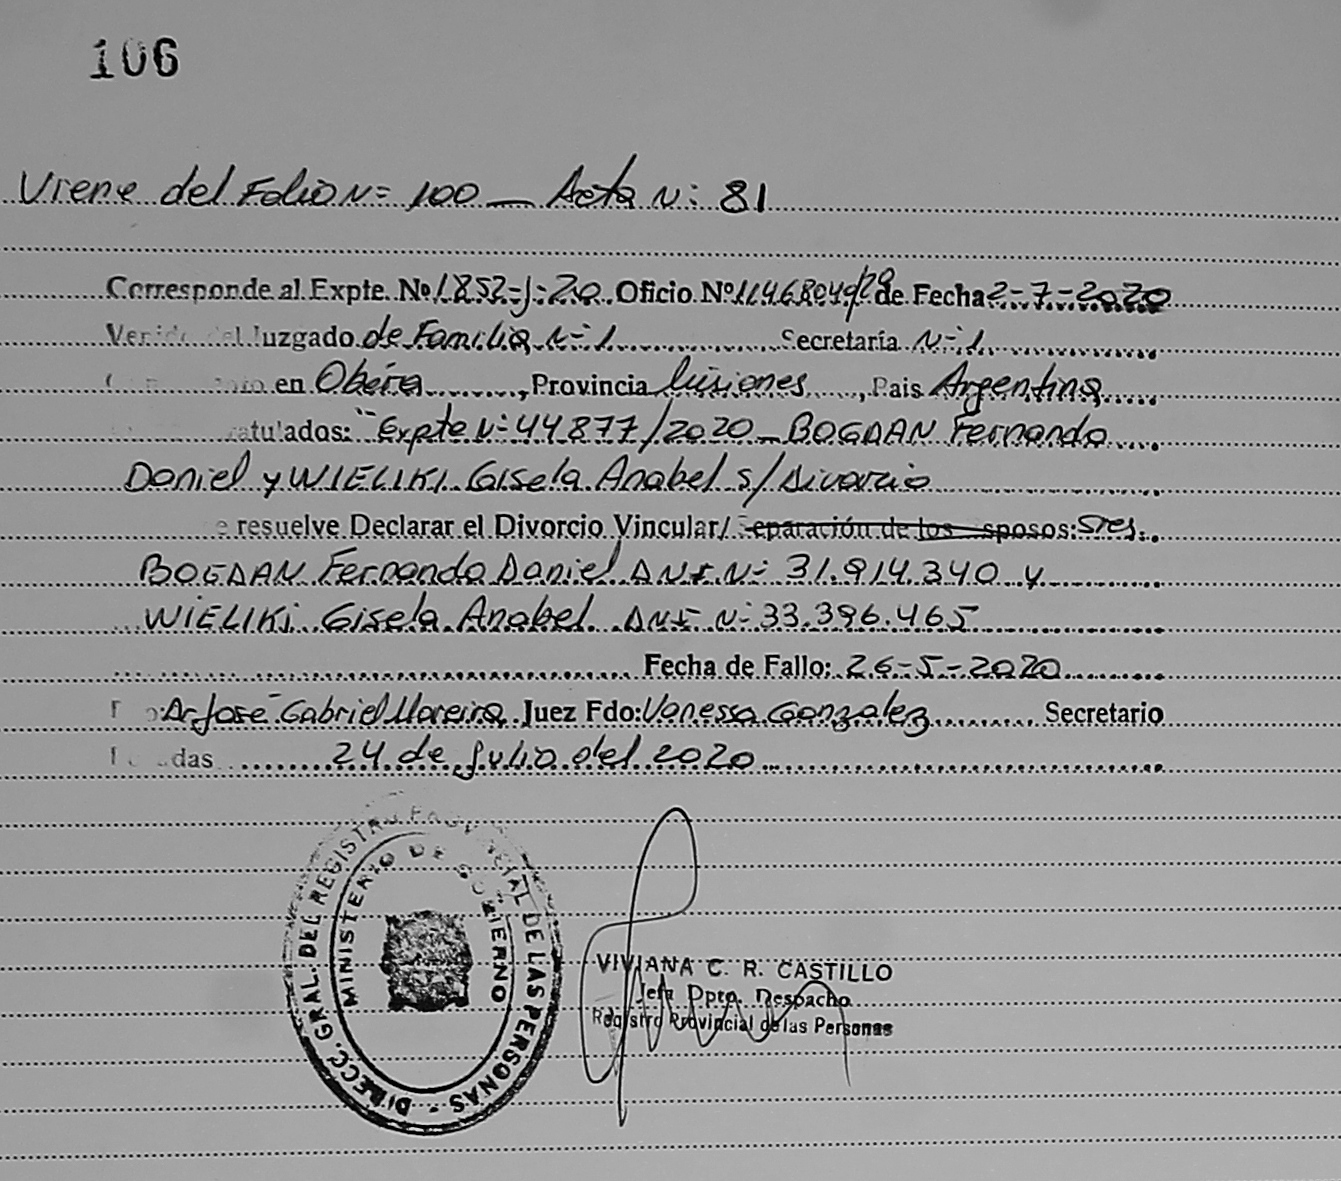 106
Viene del Folio N= 100 — Acta N: 81
Corresponde al Expte. Nº 1852-J-20 Oficio Nº de Fecha 2-7-2020
Juzgado de Familia N=1 Secretaría N=1
en Oberá, Provincia Misiones, Pais Argentina
"Expte N: 44877/2020 - BOGDAN Fernando
Daniel y WIELIKI Gisela Anabel s/ Divorcio
resuelve Declarar el Divorcio Vincular/ Separación de los sposos: Sres.
BOGDAN Fernando Daniel DNI N: 31.914.340 y
WIELIKI Gisela Anabel DNI N: 33.396.465
Fecha de Fallo: 26-5-2020
Dr José Gabriel Moreira Juez Fdo: Vanessa Gonzalez Secretario
das 24 de Julio del 2020
DIRECC. GRAL. DEL REGISTRO PROVINCIAL DE LAS PERSONAS -
MINISTERIO DE GOBIERNO
VIVIANA C. R. CASTILLO
Jefa Dpto. Despacho
Registro Provincial de las Personas